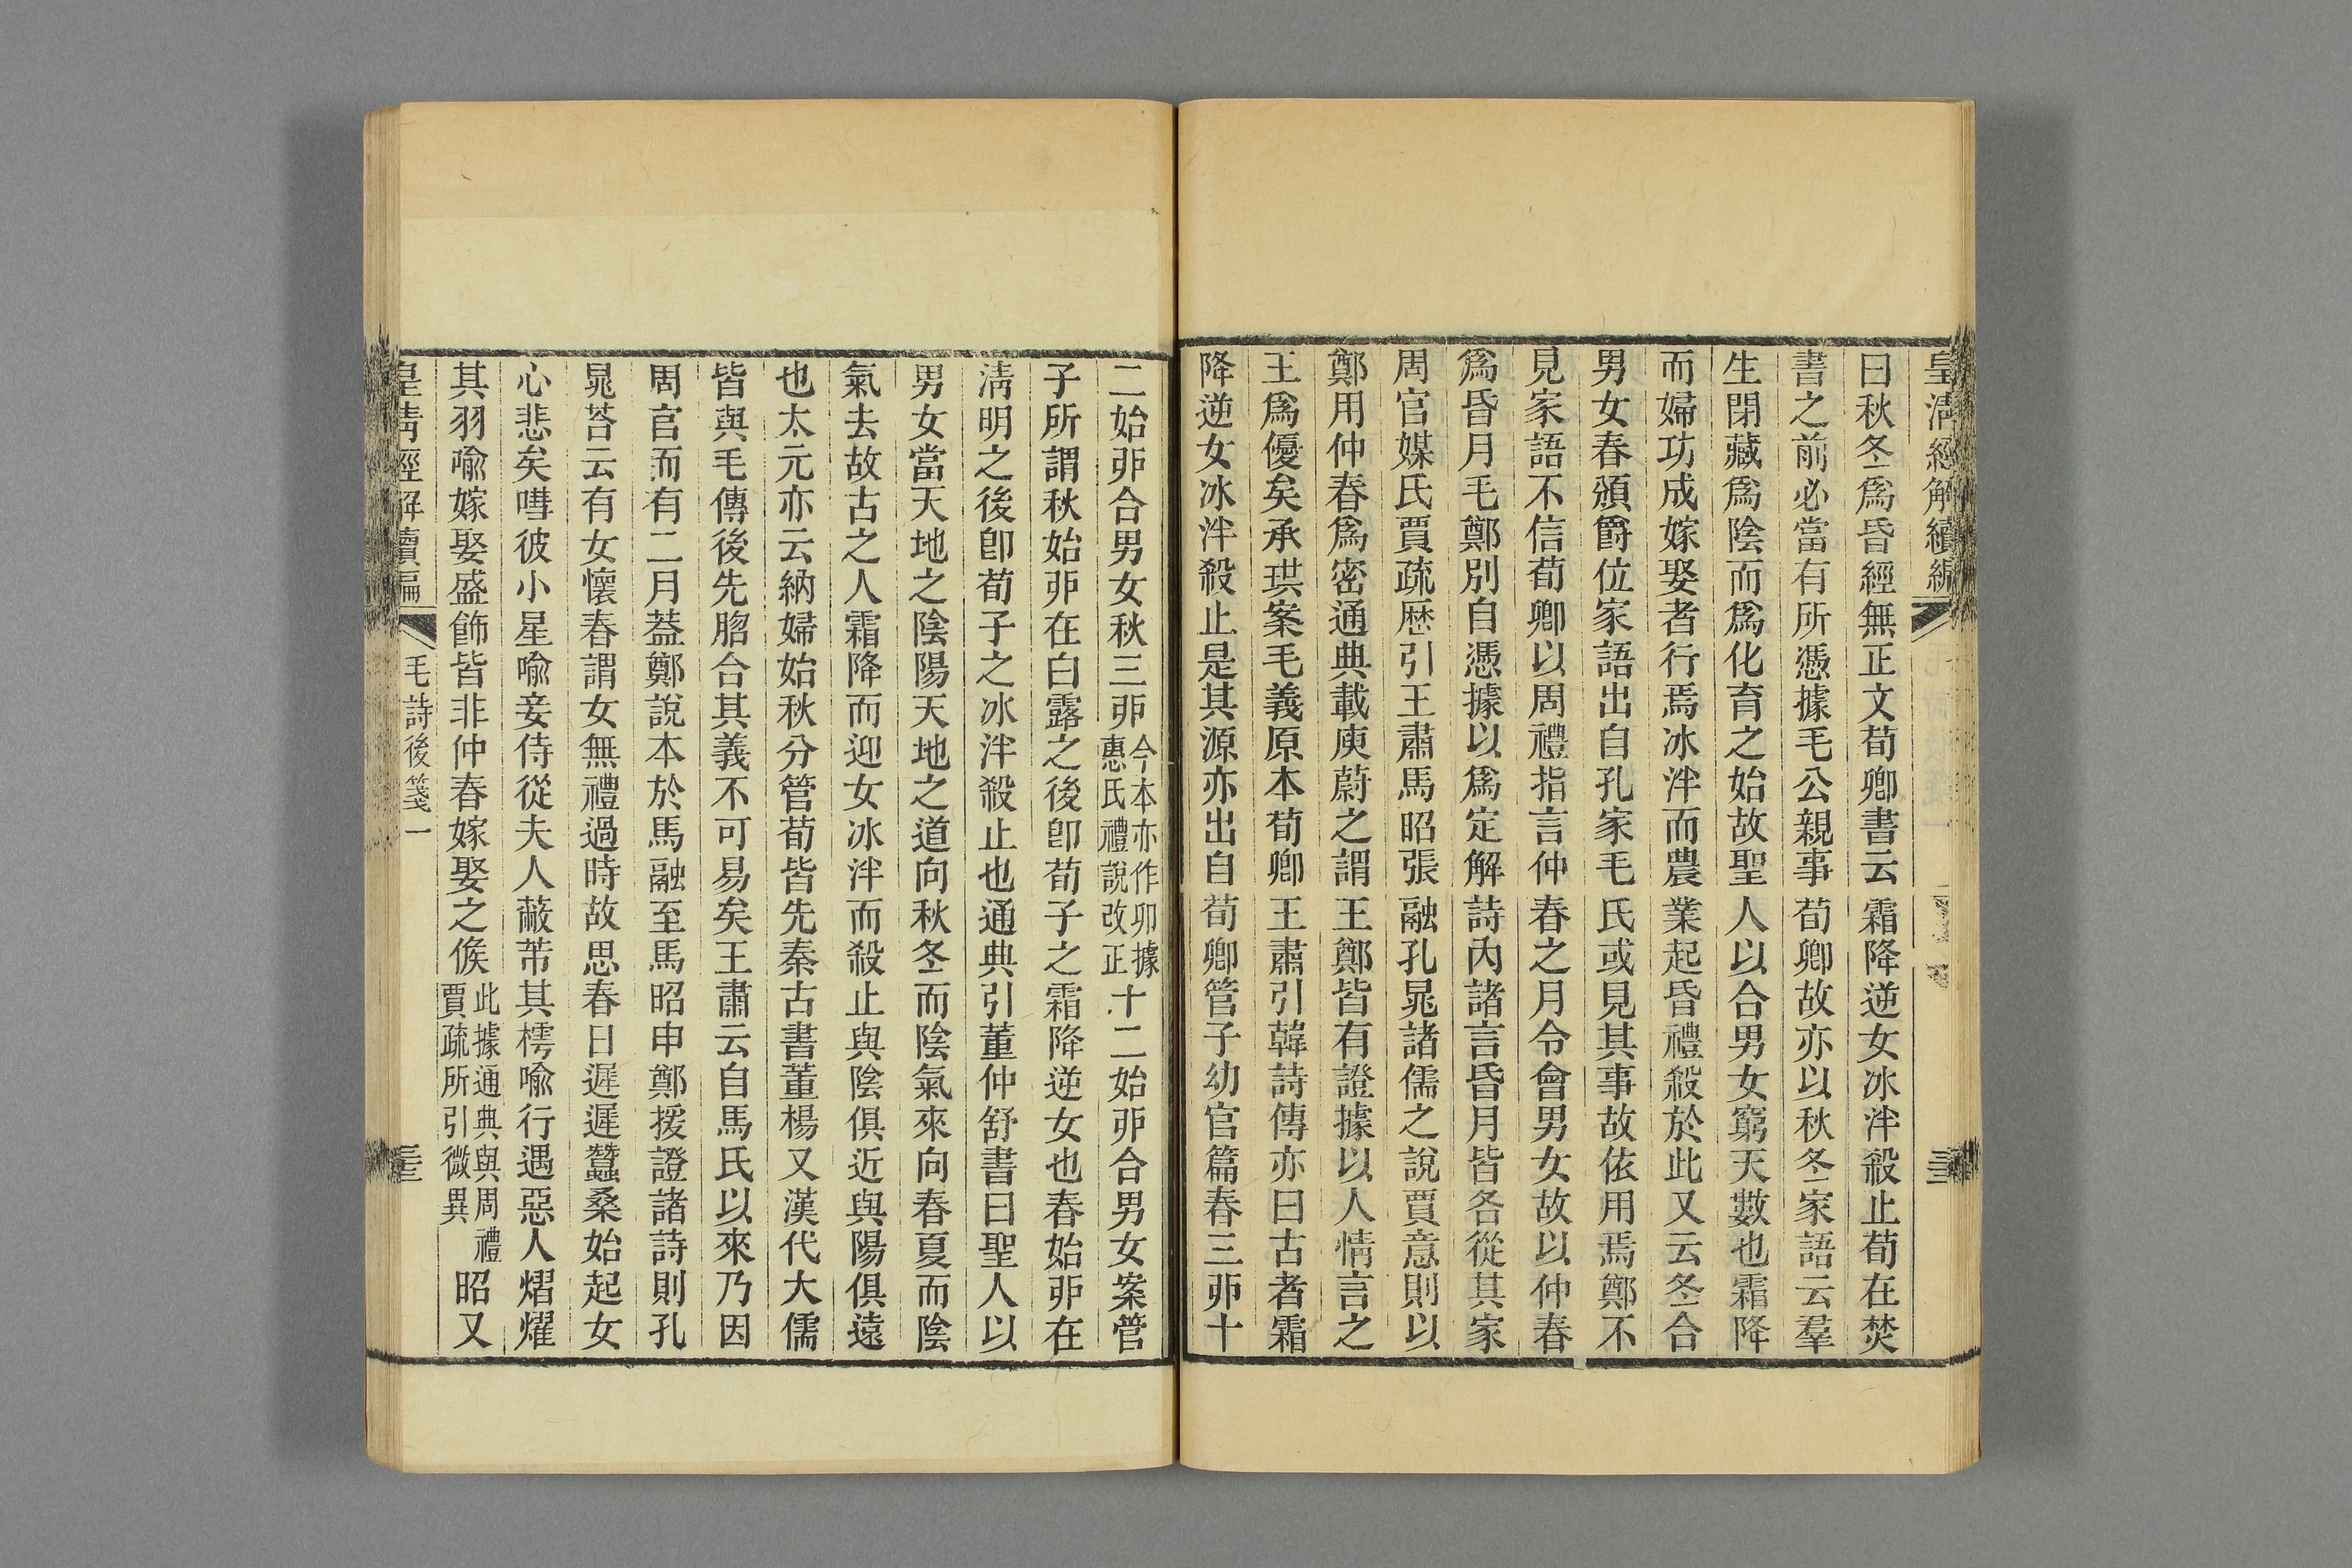 皇清經解續編
曰秋冬爲昏經無正文荀卿書云霜降逆女冰泮殺止荀在焚
書之前必當有所憑據毛公親事荀卿故亦以秋冬家語云羣
生閉藏爲陰而爲化育之始故聖人以合男女窮天數也霜降
而婦功成嫁娶者行焉冰泮而農業起昏禮殺於此又云冬合
男女春頒爵位家語出自孔家毛氏或見其事故依用焉鄭不
見家語不信荀卿以周禮指言仲春之月令會男女故以仲春
爲昏月毛鄭別自憑據以爲定解詩內諸言昏月皆各從其家
周官媒氏賈疏歷引王肅馬昭張融孔晁諸儒之說賈意則以
鄭用仲春爲密通典載庾蔚之謂王鄭皆有證據以人情言之
王爲優矣承珙案毛義原本荀卿王肅引韓詩傳亦曰古者霜
降逆女冰泮殺止是其源亦出自荀卿管子幼官篇春三丣十
二始丣合男女秋三丣今本亦作卯據惠氏禮說改正十二始丣合男女案管
子所謂秋始丣在白露之後卽荀子之霜降逆女也春始丣在
淸明之後卽荀子之冰泮殺止也通典引董仲舒書曰聖人以
男女當天地之陰陽天地之道向秋冬而陰氣來向春夏而陰
氣去故古之人霜降而迎女冰泮而殺止與陰俱近與陽俱遠
也太元亦云納婦始秋分管荀皆先秦古書董楊又漢代大儒
皆與毛傳後先脗合其義不可易矣王肅云自馬氏以來乃因
周官而有二月葢鄭說本於馬融至馬昭申鄭援證諸詩則孔
晁荅云有女懷春謂女無禮過時故思春日遲遲蠶桑始起女
心悲矣嘒彼小星喩妾侍從夫人蔽芾其樗喩行遇惡人熠燿
其羽喩嫁娶盛飾皆非仲春嫁娶之候此據通典與周禮賈疏所引微異昭又
皇淸經解續編 毛詩後箋一